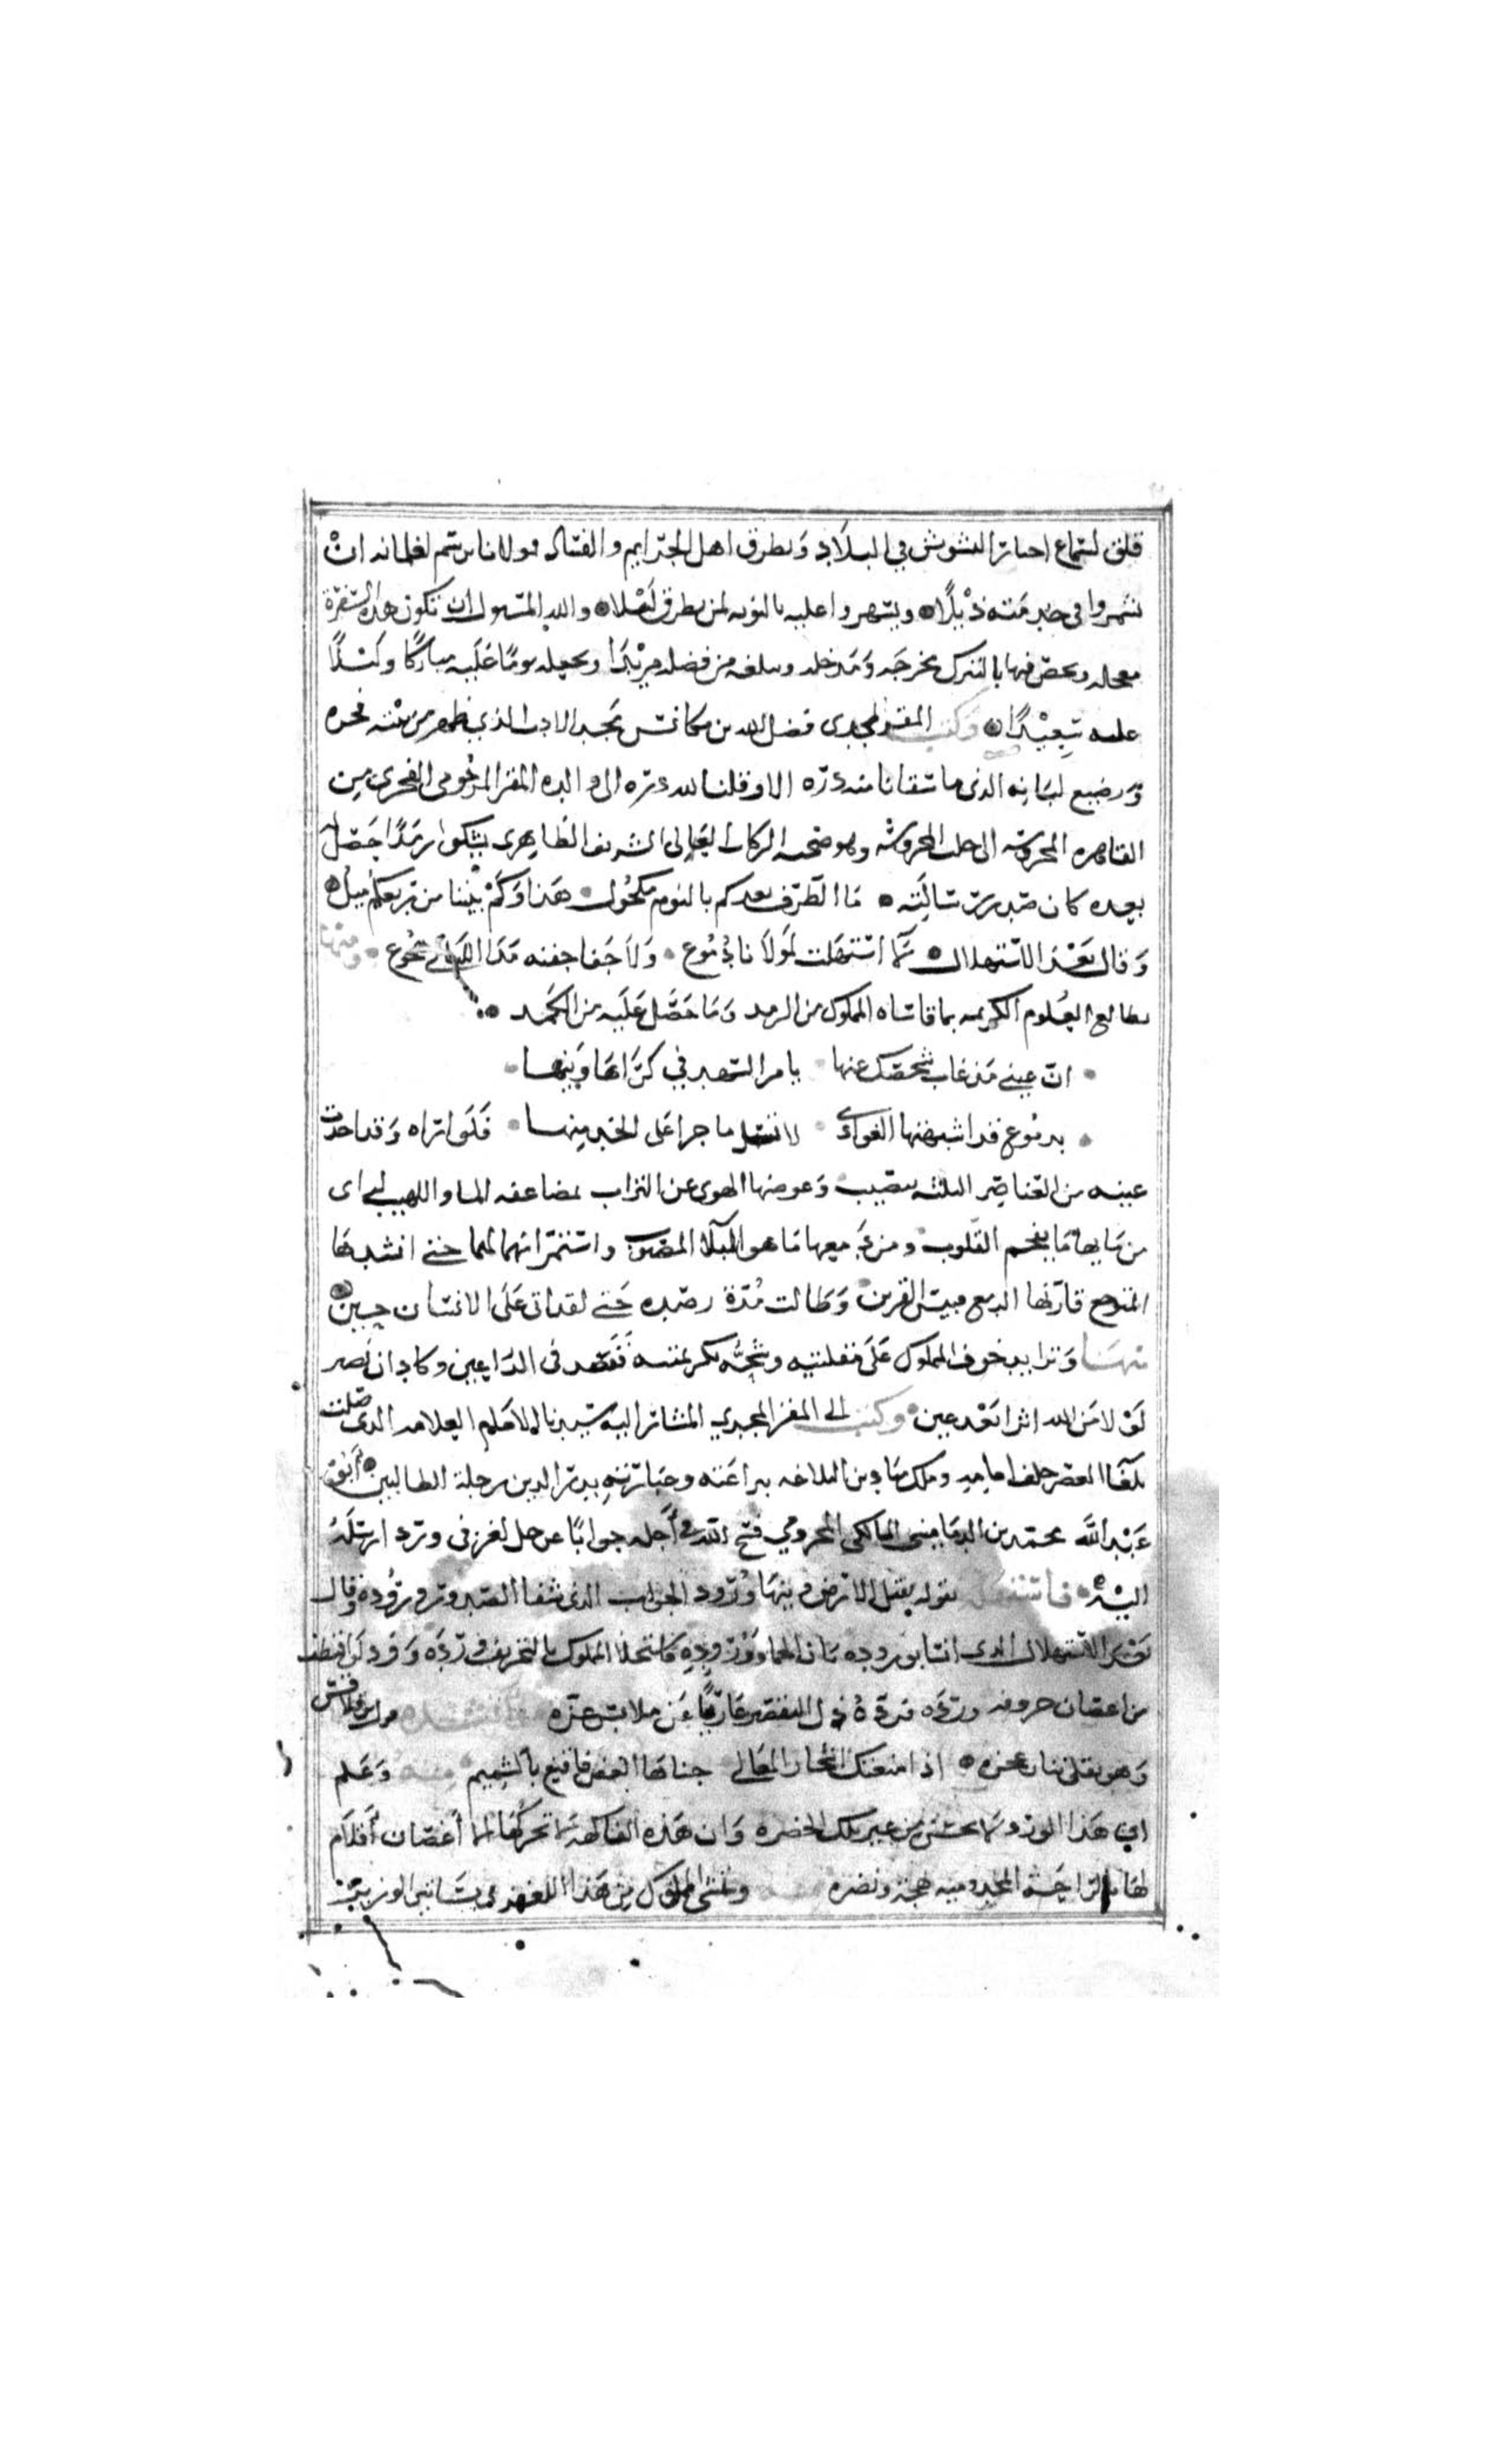 قلق لسماع اخبار التشويش في البلاد وتطرق اهل الجرايم والفساد مولانا يرسم لغلمانه ان
يشمروا في خدمته ذيلا ويسهروا عليه بالنوبة لمن يطرق ليلا والله المسول ان تكون هذه السفرة
معجله ويخص فيها بالتبرك مخرجه ومدخله ويبلغه من فضله مزيدا ويجعله يوما عليه مباركا وكسلا
عليه سعيدا وكتب المقر المجدي فضل الله بن مكانس مجد الادب الذي ظهر من بيته فخره
ورضيع لبانه الذي ما سقانا منه دره الا وقلنا لله دره الى والده المقر المرحومي الفخري من
القاهره المحروسه الى حلب المحروسه وهو صحبه الركاب العالي الشريف الظاهري يشكوا رمدا حصل له
بعده كان صدر رسالته ما الطرف بعدكم بالنوم مكحول هذا وكم بيننا من ربعكم ميل
وقال بعد الاستهلال كما استهلت لمولانا دموع ولا جفا جفنه مدا الليالي هجوع ومنها
يطالع العلوم الكريمه بما قاساه المملوك من الرمد وما حصل عليه من الكمد
ان عيني مذ غاب شخصك عنها يامر السهد في كراها وينها
بدموع قد اشبهتها الغوادي لا تسل ما جرا على الخد منها فلو تراه وقد اخذت
عينه من العناصر الثلثه بنصيب وعوضها الهوى عن التراب بمضاعفه الما واللهيب لراى
من مايها ما يفحم القلوب ومن دمعها ما هو البلا المصبوب واستمر انهمالها حتى انشدها
المتوجع قارنها الدمع فبيس القرين وطالت مدة رمده حتى لقد اتى على الانسان حين
منها وتزايد خوف المملوك على مقلتيه وشحه بكريمتيه فقعد في الداعين وكاد ان يصير
لولا من الله اثرا بعد عين وكتب الى المقر المجدي المشار اليه سيدنا الامام العلامه الذي صلت
بلغا العصر خلف امامه وملك ميادين البلاغه ببراعته وعبارته بدر الدين رحلة الطالبين ابو
عبد الله محمد بن الدماميني المالكي المخزومي فسح الله في اجله جوابا عن حل لغز في ورد ارسله
اليه فاستفتحه بقوله يقبل الارض وينها ورود الجواب الذي شفا الصدر وروده وقال
بعد الاستهلال الذي انسا بوروده بان الحما ووروده فاستحلا المملوك بالتحريف ورده وفرد
من اغصان حروفه ورده فرده ذيل التقصير عاريا عن ملابس عزه
وهو يقلى بنار عجزه اذا منعتك اشجار المعالي جناها الغض فاقنع بالشميم منه وعلم
ان هذا الورد لا يحسن من غير تلك الحضره وان هذه الفاكهه ما تحركها الا اغصان اقلام
لها بالراحة المخدوميه بهجه ونضره وتمشى المملوك من هذا اللغز في بساتين الوزير